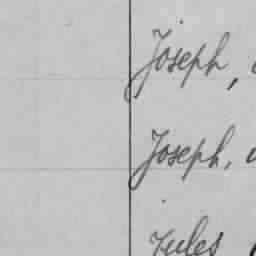 Joseph,
Joseph,
Jules